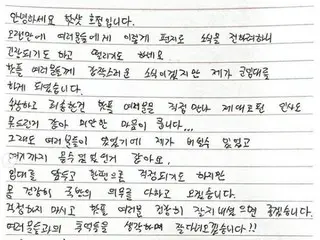 안녕하세요 핫샷 호정입니다.
오랜만에 여러분들에게 이렇게 편지로 소식을 전하려하니
긴장되기도 하고 떨리기도 하네요
핫플 여러분들께 갑작스러운 소식이겠지만 제가 군입대를
하게 되었습니다.
속상하고 죄송한건 핫플 여러분을 직접 만나 제대로된 인사도
못드린거 같아 미안한 마음이 큽니다...
그래도 여러분들이 있었기에 제가 버틸수 있었고
여기까지 올수 있었던거 같아요.
입대를 앞두고 한편으로 걱정되기도 하지만
몸 건강히 국방의 의무를 다하고 오겠습니다.
걱정하지 마시고 핫플 여러분 건강히 잘지내셨으면 좋겠습니다.
여러분들과의 추억들을 생각하며 잘다녀오겠습니다!!